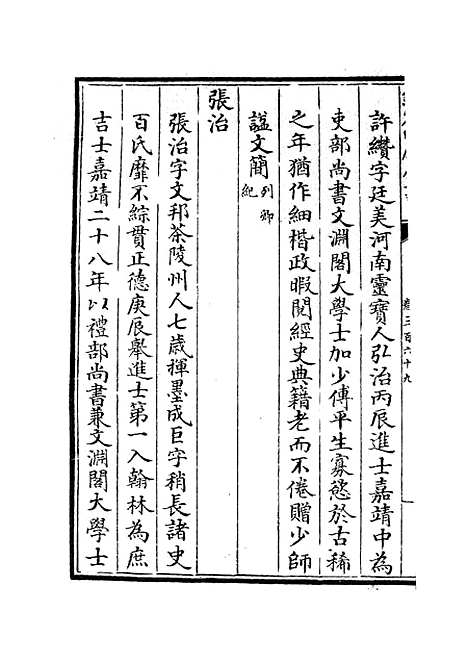 許纘字廷美河南靈寶人弘治丙辰進士嘉靖中為
吏部尚書文淵閣大學士加少傅平生寡慾於古稀
之年猶作細楷政暇閱經史典籍老而不倦贈少師
諡文簡列卿紀
張治
張治字文邦茶陵州人七歲揮墨成巨字稍長諸史
百氏靡不綜貫正德庚辰舉進士第一入翰林為庶
吉士嘉靖二十八年以禮部尚書兼文淵閣大學士
卷三百六十九